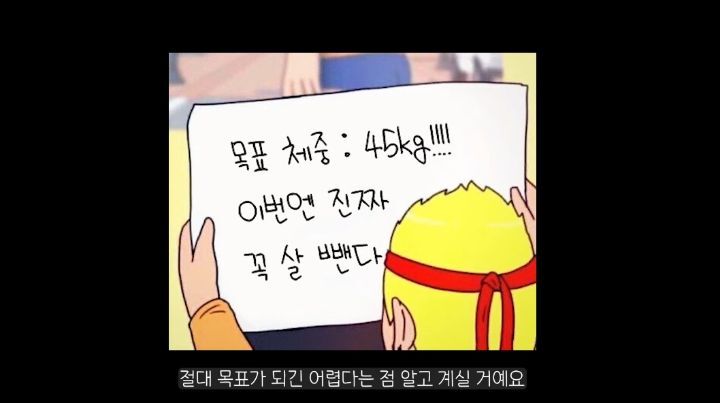 목표 체중 : 45kg!!!!
이번엔 진짜
꼭 살 뺀다
절대 목표가 되긴 어렵다는 점 알고 계실 거예요